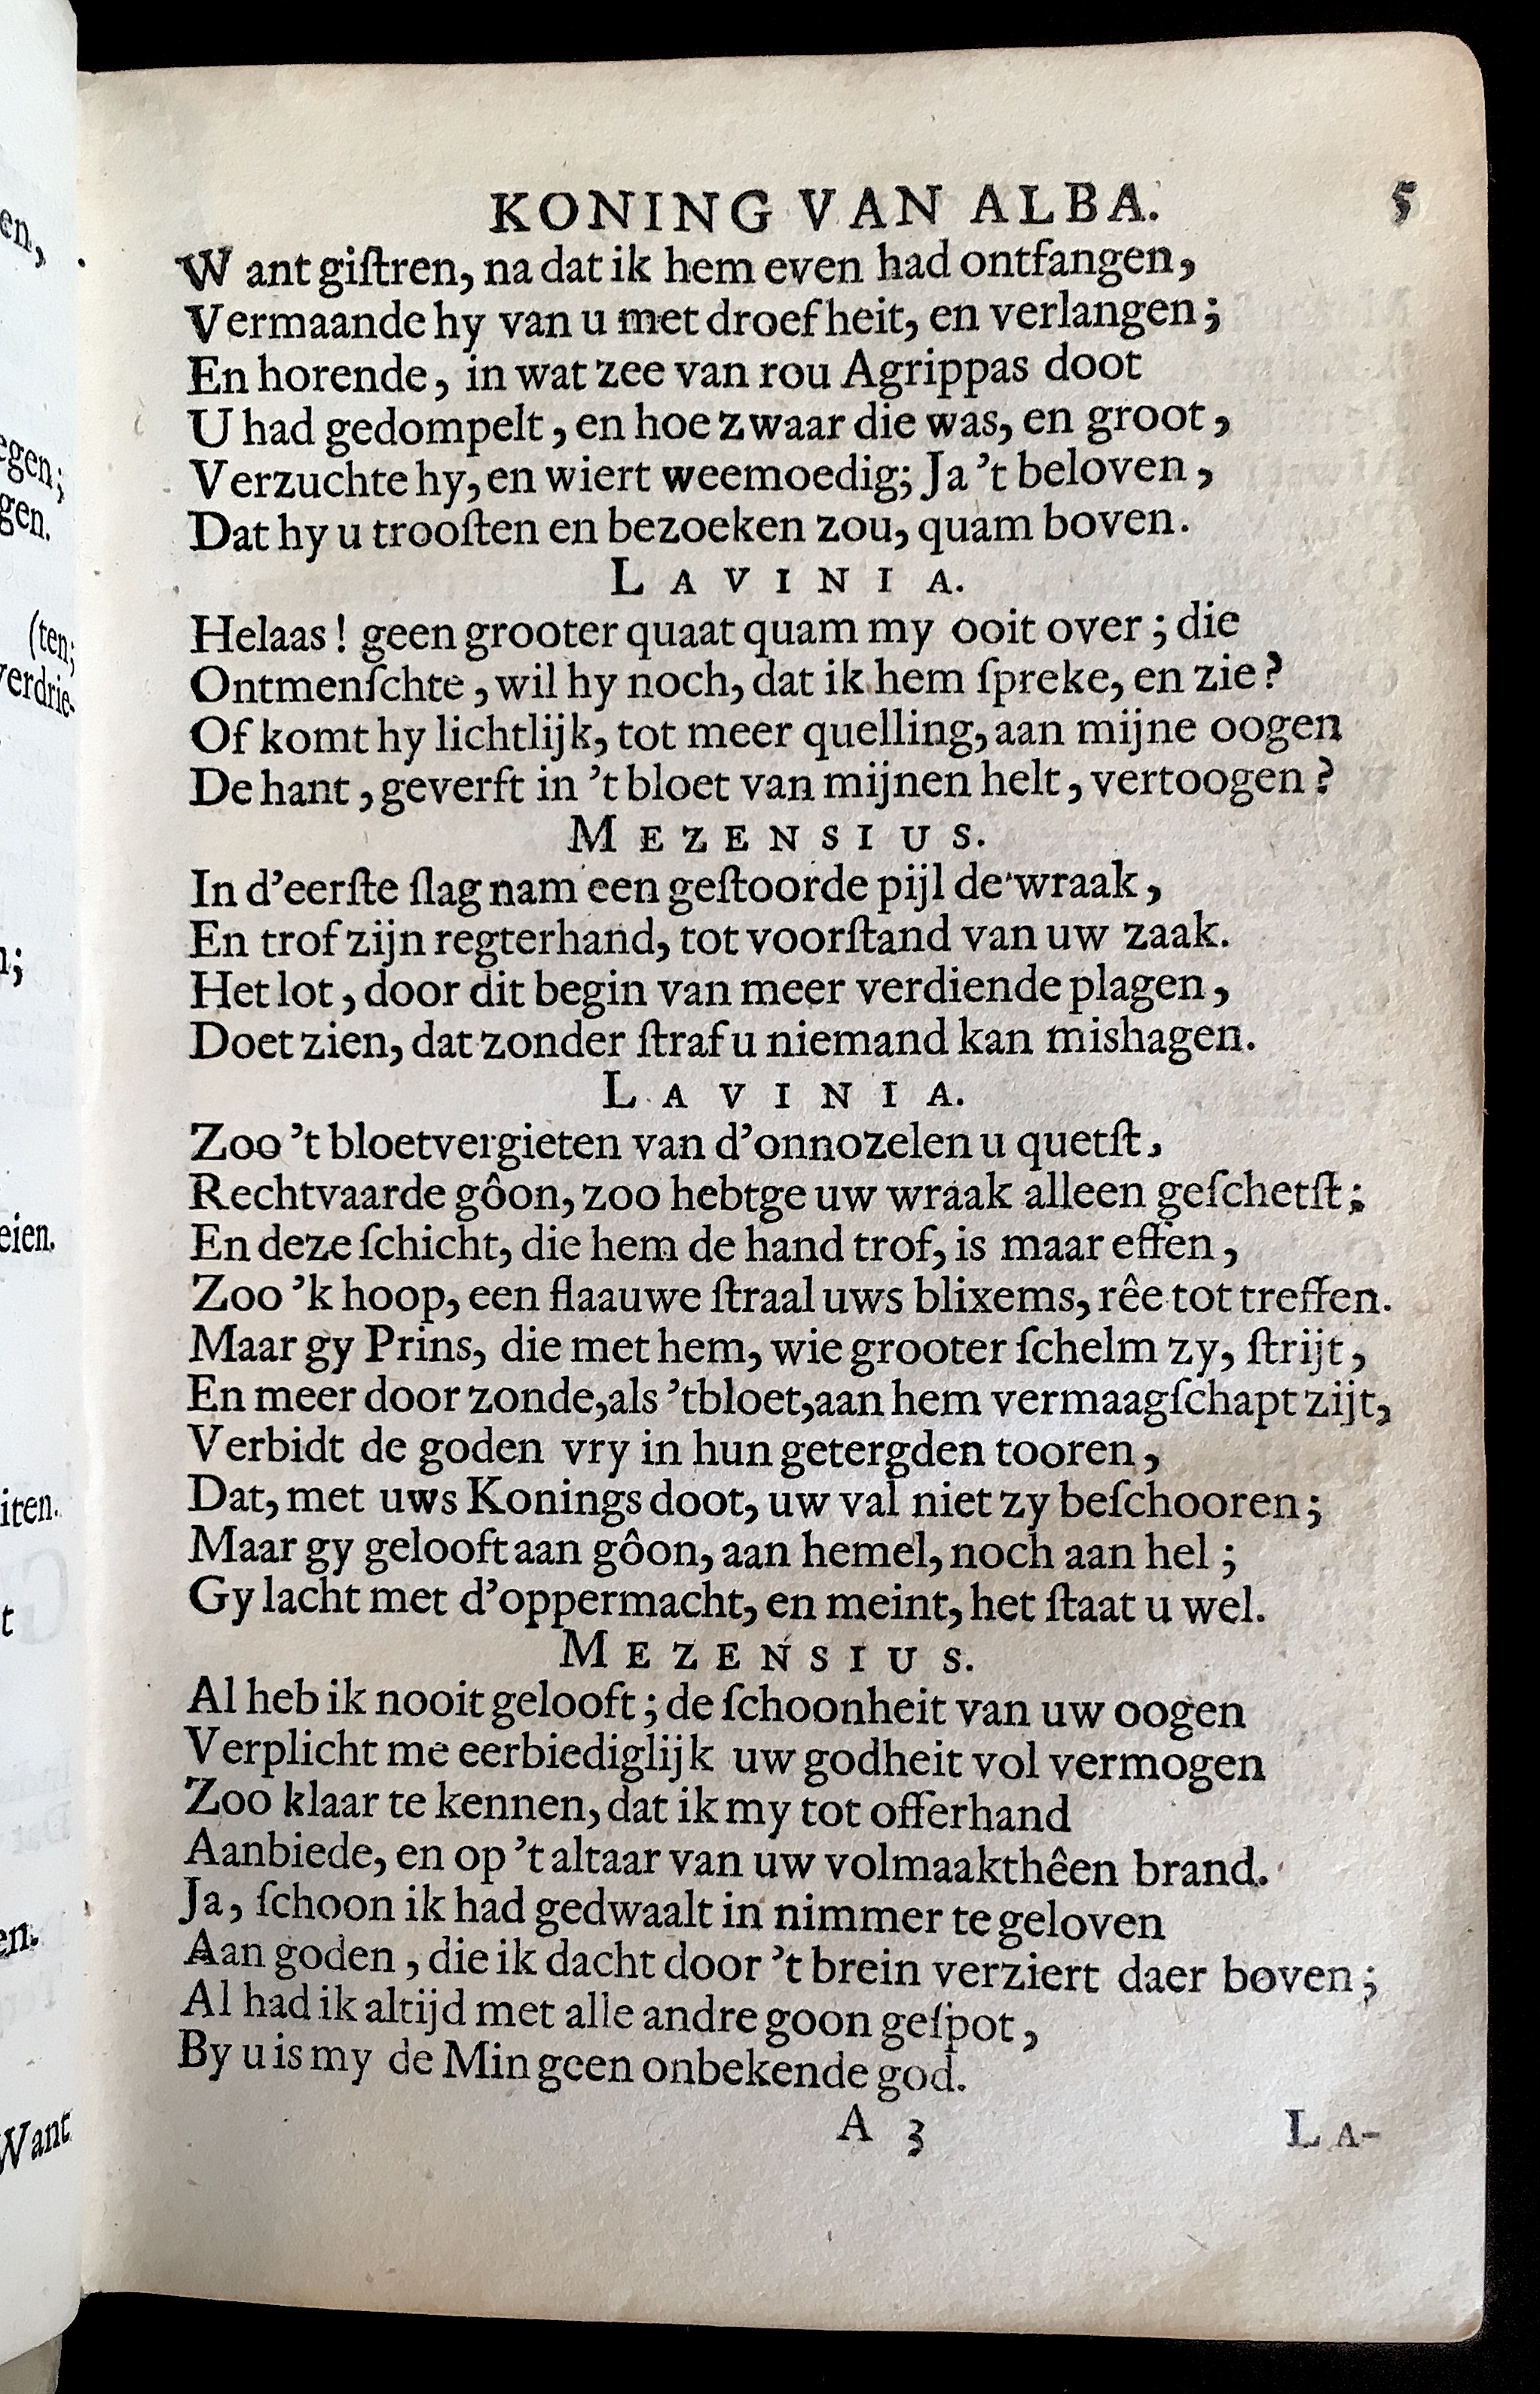 KONING VAN ALBA. 5
Want giſtren, na dat ik hem even had ontfangen,
Vermaande hy van u met droefheit, en verlangen;
En horende, in wat zee van rou Agrippas doot
U had gedompelt, en hoe zwaar die was, en groot,
Verzuchte hy, en wiert weemoedig; Ja 't beloven,
Dat hy u trooſten en bezoeken zou, quam boven.
LAVINIA.
Helaas! geen grooter quaat quam my ooit over; die
Ontmenſchte, wil hy noch, dat ik hem ſpreke, en zie?
Of komt hy lichtlijk, tot meer quelling, aan mijne oogen
De hant, geverft in 't bloet van mijnen helt, vertoogen?
MEZENSIUS.
In d'eerſte ſlag nam een geſtoorde pijl de wraak,
En trof zijn regterhand, tot voorſtand van uw zaak.
Het lot, door dit begin van meer verdiende plagen,
Doet zien, dat zonder ſtraf u niemand kan mishagen.
LAVINIA.
Zoo 't bloetvergieten van d'onnozelen u quetſt,
Rechtvaarde gôon, zoo hebtge uw wraak alleen geſchetſt;
En deze ſchicht, die hem de hand trof, is maar effen,
Zoo 'k hoop, een flaauwe ſtraal uws blixems, rêe tot treffen.
Maar gy Prins, die met hem, wie grooter ſchelm zy, ſtrijt,
En meer door zonde, als 't bloet, aan hem vermaagſchapt zijt,
Verbidt de goden vry in hun getergden tooren,
Dat, met uws Konings doot, uw val niet zy beſchooren;
Maar gy gelooft aan gôon, aan hemel, noch aan hel;
Gy lacht met d'oppermacht, en meint, het ſtaat u wel.
MEZENSIUS.
Al heb ik nooit gelooft; de ſchoonheit van uw oogen
Verplicht me eerbiediglijk uw godheit vol vermogen
Zoo klaar te kennen, dat ik my tot offerhand
Aanbiede, en op 't altaar van uw volmaakthêen brand.
Ja, ſchoon ik had gedwaalt in nimmer te geloven
Aan goden, die ik dacht door 't brein verziert daer boven;
Al had ik altijd met alle andre goon geſpot,
By u is my de Min geen onbekende god.
A 3 LA-
en,
egen;
gen.
(ten;
verdrie-
n;
eien.
iten.
t
en.
Want